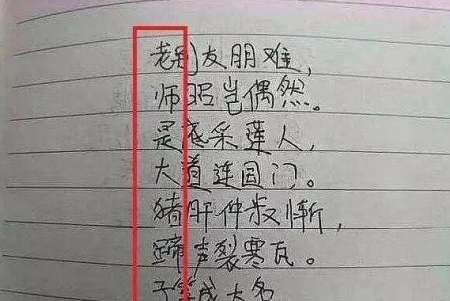 老别友朋难，
师照岂偶然。
是底采莲人，
大道连国门。
猪肝仲叔惭，
蹄声裂寒瓦。
子等成大名